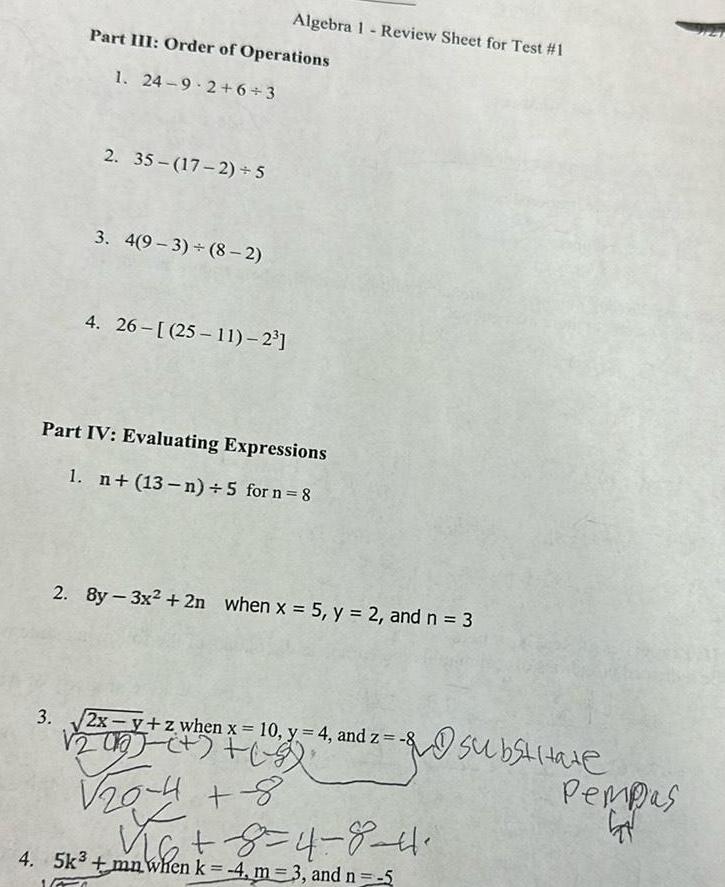 Algebra 1 - Review Sheet for Test #1
Part III: Order of Operations
1. 24 – 9 · 2 + 6 ÷ 3
2. 35 – (17 – 2) ÷ 5
3. 4(9 – 3) ÷ (8 – 2)
4. 26 – [ (25 – 11) – 2³]
Part IV: Evaluating Expressions
1. n + (13 – n) ÷ 5 for n = 8
2. 8y – 3x² + 2n when x = 5, y = 2, and n = 3
3. √2x – y + z when x = 10, y = 4, and z = -8
√2(10)-(4) + (-8)
① substitate
√20-4 + -8
Pempas
√16 + -8=4-8-4.
4. 5k³ + mn when k = -4, m = 3, and n = -5